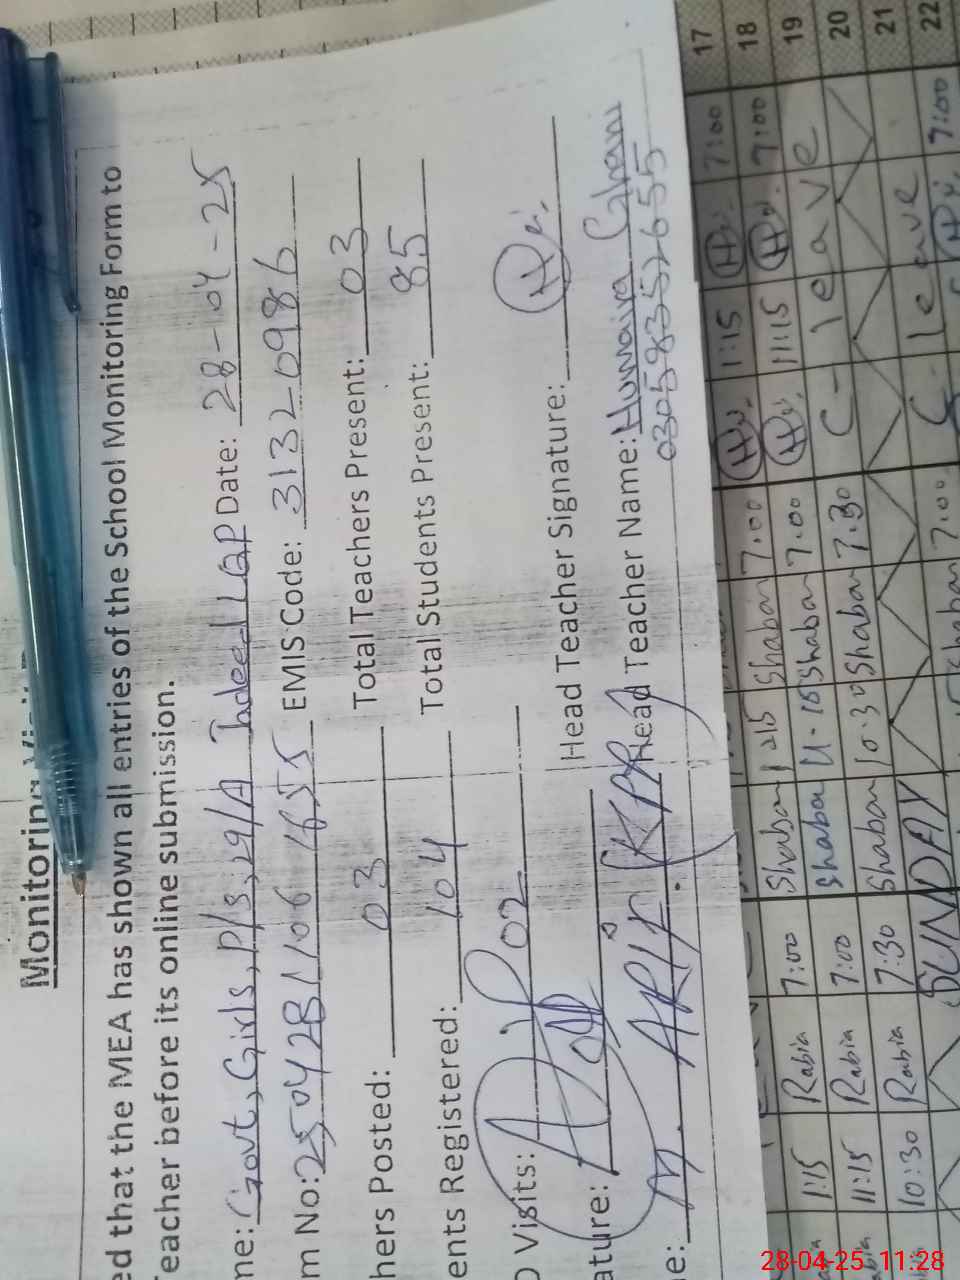 Monitoring
ed that the MEA has shown all entries of the School Monitoring Form to
Teacher before its online submission.
me: Govt, Girls, P/S, 29/A Indeed LQP Date: 28-04-25
m No: 250428 1106 1655 EMIS Code: 31320986
hers Posted: 03 Total Teachers Present: 03
ents Registered: 104 Total Students Present: 85
O Visits: 02
ature: Head Teacher Signature:
e: M. ARIF Head Teacher Name: Humaira Ghani
03058352655
17 18 19 20 21 22
1:15 7:00
11:15 7:00
C-leave
C-leave 7:00
1:15 Rabia 7:00 Shaban 1215 Shaban 7.00
11:15 Rabia 7:00 Shaban 11.15 Shaban 7.00
10:30 Rabia 7:30 Shaban 10.30 Shaban 7.30
SUNDAY
Shaban 7:00
28-04-25 11:28